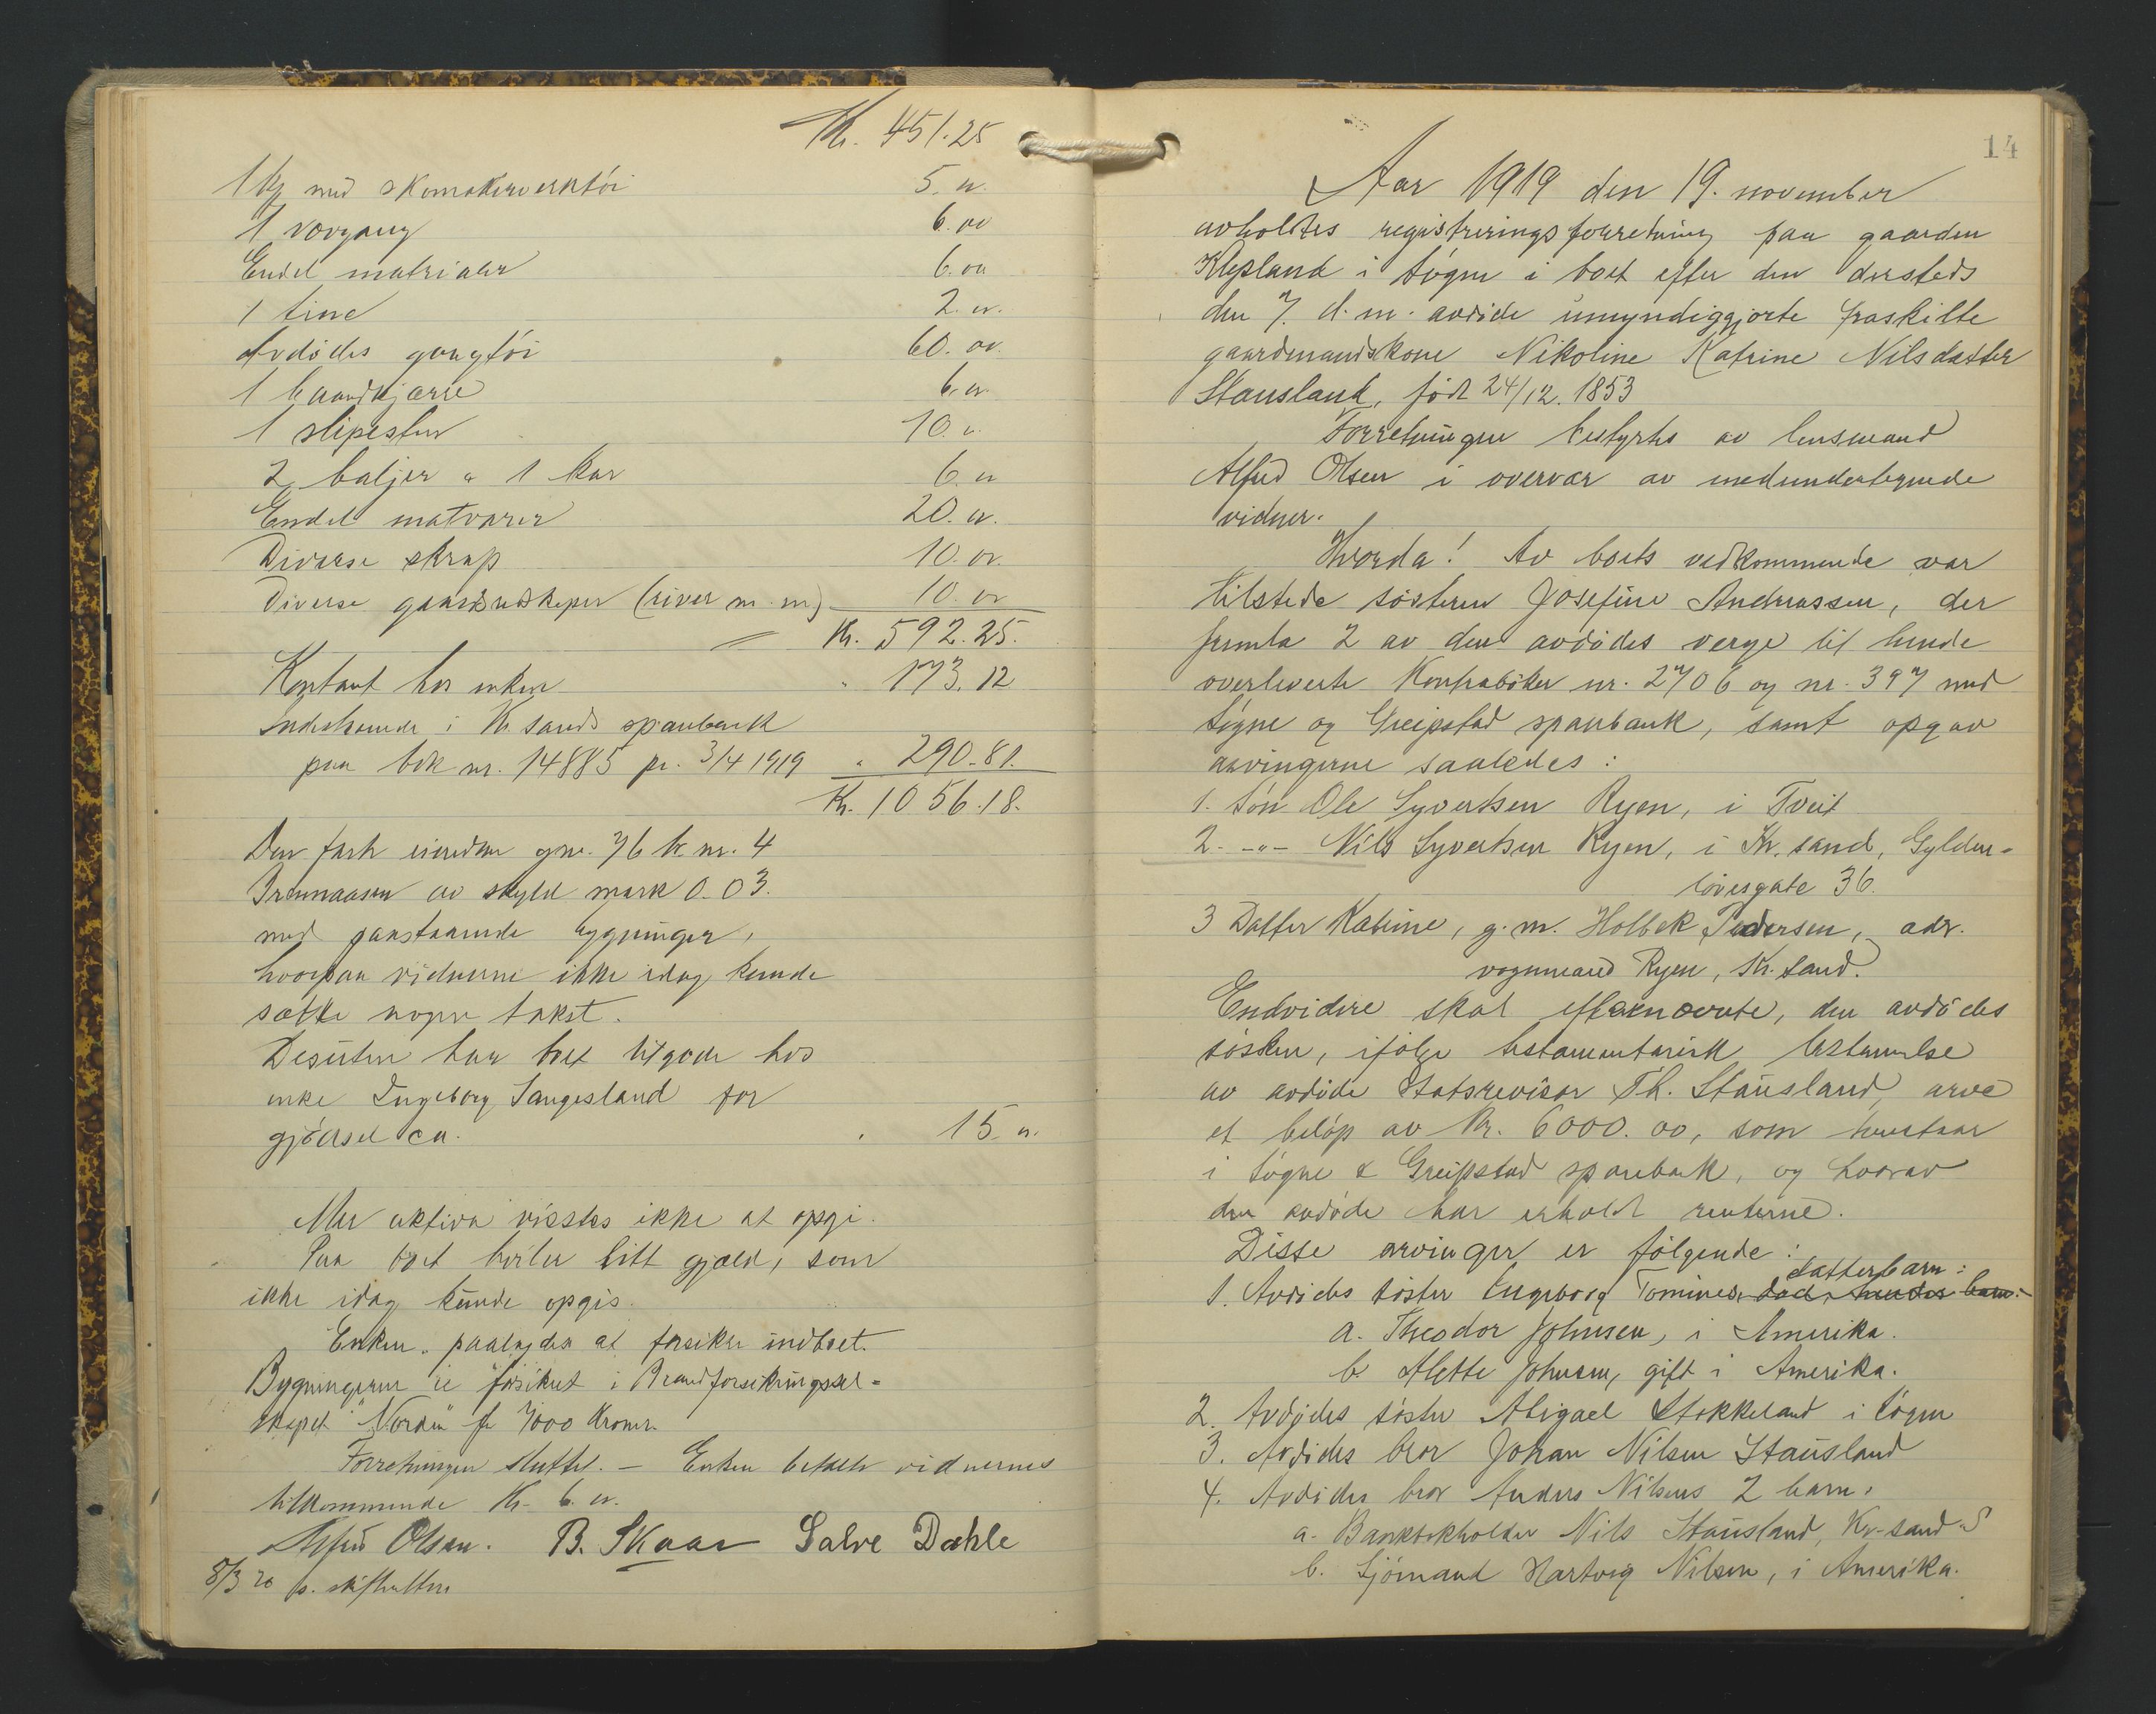 Kr. 451.25
1 kg med skomakerverktöi 5. oo
1 vovgang 6. oo
Endel matrialer 6. oo
1 tine 2. oo
Avdödes gangtöi 60. oo
1 haandkjærre 6. oo
1 slipesten 10. oo
2 baljer & 1 kar 6. oo
Endel matvarer 20. oo
Diverse skrap 10. oo
Diverse gaardsredskaper (river m. m.) 10. oo
Kr. 592.25.
Kontant hos enken " 173.12
Indestaaende i Kr.sands sparebank
paa bok nr. 14885 pr. 3/4 1919 " 290.81.
Kr. 1056.18.
Den faste eiendom gnr. 76 br. nr. 4
av skyld mark 0.03.
med paastaaende bygninger,
hvorpaa vidnerne ikke idag kunde
sætte nogen takst.
Desuten har boet tilgode hos
enke Ingeborg Langesland for
gjödsel ca. " 15. oo
Mer aktiva visstes ikke at opgi.
Paa boet hviler litt gjæld, som
ikke idag kunde opgis.
Enken paalagdes at forsikre indboet.
Bygningerne er forsikret i Brandforsikringssel-
skapet "Norden" for 7000 Kroner.
Forretningen sluttet. — Enken betalte vidnernes
tilkommende Kr. 6. oo.
Alfred Olsen. B. Skaar Salve Dahle
8/3 20 s. skifteretten
14
Aar 1919 den 19. november
avholdtes registreringsforretning paa gaarden
Klepland i Sögne i boet efter den dersteds
den 7. d. m. avdöde umyndiggjorte fraskilte
gaardmandskone Nikoline Katrine Nilsdatter
Stausland, född 24/12. 1853
Forretningen bestyrtes av lensmand
Alfred Olsen i overvær av medundertegnede
vidner.
Hvorda! Av boets vedkommende var
tilstede sösteren Josefine Andreassen, der
fremla 2 av den avdödes verge til hende
overleverte Kontraböker nr. 2706 og nr. 397 med
Sögne og Greipstad sparebank, samt opgav
arvingerne saaledes:
1. Sön Ole Syvertsen Ryen, i Tveit
2. -"- Nils Syvertsen Ryen, i Kr. sand, Gylden-
lövesgate 36.
3 Datter Katrine, g. m. Holbek Pedersen, adr.
vognmand Ryen, Kr. sand.
Endvidere skal efternævnte, den avdödes
sösken, ifölge testamentarisk bestemmelse
av avdöde Statsrevisor Th. Stausland, arve
et belöp av Kr. 6000.oo, som henstaar
i Sögne & Greipstad sparebank, og hvorav
den avdöde har erholdt renterne.
Disse arvinger er fölgende:
1. Avdödes söster Ingeborg Tomines datterbarn:
a. Theodor Johnsen, i Amerika.
b. Alette Johnsen, gift i Amerika.
2. Avdödes söster Abigael Stokkeland i Sögne
3. Avdödes bror Johan Nilsen Stausland
4. Avdödes bror Anders Nilsens 2 barn,
a. Bankbokholder Nils Stausland, Kr-sand S
b. Sjömand Hartvig Nilsen, i Amerika.